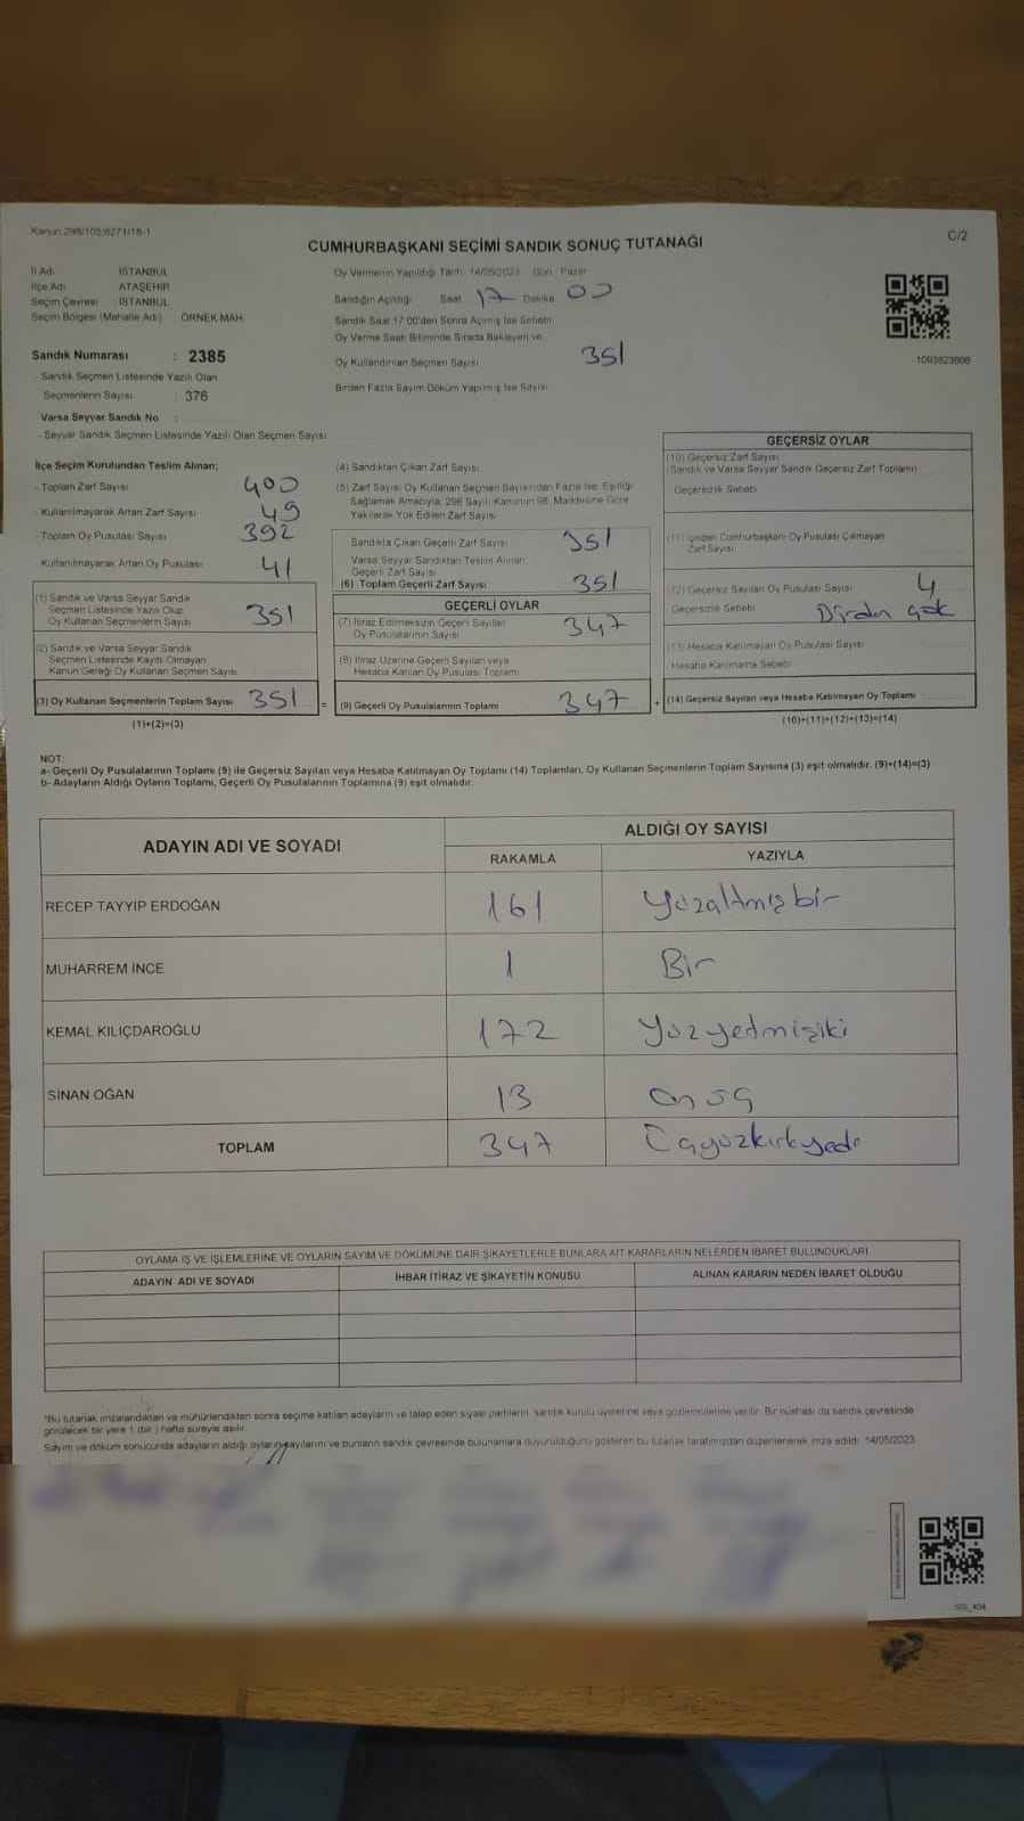 Kanun:298/105;6271/18-1
C/2
CUMHURBAŞKANI SEÇİMİ SANDIK SONUÇ TUTANAĞI
İl Adı İSTANBUL
İlçe Adı ATAŞEHİR
Seçim Çevresi İSTANBUL
Seçim Bölgesi (Mahalle Adı) ÖRNEK MAH.
Sandık Numarası : 2385
- Sandık Seçmen Listesinde Yazılı Olan
Seçmenlerin Sayısı : 376
Varsa Seyyar Sandık No :
- Seyyar Sandık Seçmen Listesinde Yazılı Olan Seçmen Sayısı
Oy Vermenin Yapıldığı Tarih: 14/05/2023 Gün: Pazar
Sandığın Açıldığı Saat 17 Dakika 00
Sandık Saat 17:00'den Sonra Açılmış İse Sebebi
Oy Verme Saati Bitiminde Sırada Bekleyen ve
Oy Kullandırılan Seçmen Sayısı 351
Birden Fazla Sayım Döküm Yapılmış İse Sayısı
1093823806
İlçe Seçim Kurulundan Teslim Alınan;
- Toplam Zarf Sayısı 400
- Kullanılmayarak Artan Zarf Sayısı 49
- Toplam Oy Pusulası Sayısı 392
- Kullanılmayarak Artan Oy Pusulası 41
(1) Sandık ve Varsa Seyyar Sandık
Seçmen Listesinde Yazılı Olup
Oy Kullanan Seçmenlerin Sayısı 351
(2) Sandık ve Varsa Seyyar Sandık
Seçmen Listesinde Kayıtlı Olmayan
Kanun Gereği Oy Kullanan Seçmen Sayısı
(3) Oy Kullanan Seçmenlerin Toplam Sayısı 351 =
(1)+(2)=(3)
(4) Sandıktan Çıkan Zarf Sayısı
(5) Zarf Sayısı Oy Kullanan Seçmen Sayısından Fazla İse, Eşitliği
Sağlamak Amacıyla, 298 Sayılı Kanunun 98. Maddesine Göre
Yakılarak Yok Edilen Zarf Sayısı
Sandıkta Çıkan Geçerli Zarf Sayısı 351
Varsa Seyyar Sandıktan Teslim Alınan
Geçerli Zarf Sayısı
(6) Toplam Geçerli Zarf Sayısı 351
GEÇERLİ OYLAR
(7) İtiraz Edilmeksizin Geçerli Sayılan
Oy Pusulalarının Sayısı 347
(8) İtiraz Üzerine Geçerli Sayılan veya
Hesaba Katılan Oy Pusulası Toplamı
(9) Geçerli Oy Pusulalarının Toplamı 347 +
GEÇERSİZ OYLAR
(10) Geçersiz Zarf Sayısı
(Sandık ve Varsa Seyyar Sandık Geçersiz Zarf Toplamı)
Geçersizlik Sebebi
(11) İçinden Cumhurbaşkanı Oy Pusulası Çıkmayan
Zarf Sayısı
(12) Geçersiz Sayılan Oy Pusulası Sayısı 4
Geçersizlik Sebebi
(13) Hesaba Katılmayan Oy Pusulası Sayısı
Hesaba Katılmama Sebebi
(14) Geçersiz Sayılan veya Hesaba Katılmayan Oy Toplamı
(10)+(11)+(12)+(13)=(14)
NOT:
a- Geçerli Oy Pusulalarının Toplamı (9) ile Geçersiz Sayılan veya Hesaba Katılmayan Oy Toplamı (14) Toplamları, Oy Kullanan Seçmenlerin Toplam Sayısına (3) eşit olmalıdır. (9)+(14)=(3)
b- Adayların Aldığı Oyların Toplamı, Geçerli Oy Pusulalarının Toplamına (9) eşit olmalıdır.
ADAYIN ADI VE SOYADI ALDIĞI OY SAYISI
RAKAMLA YAZIYLA
RECEP TAYYİP ERDOĞAN 161 Yüzaltmışbir
MUHARREM İNCE 1 Bir
KEMAL KILIÇDAROĞLU 172 Yüzyetmişiki
SİNAN OĞAN 13 Onüç
TOPLAM 347 Üçyüzkırkyedi
OYLAMA İŞ VE İŞLEMLERİNE VE OYLARIN SAYIM VE DÖKÜMÜNE DAİR ŞİKAYETLERLE BUNLARA AİT KARARLARIN NELERDEN İBARET BULUNDUKLARI
ADAYIN ADI VE SOYADI İHBAR İTİRAZ VE ŞİKAYETİN KONUSU ALINAN KARARIN NEDEN İBARET OLDUĞU
*Bu tutanak imzalandıktan ve mühürlendikten sonra seçime katılan adayların ve talep eden siyasi partilerin, sandık kurulu üyelerine veya gözlemcilerine verilir. Bir nüshası da sandık çevresinde
görülecek bir yere 1 (bir) hafta süreyle asılır.
Sayım ve döküm sonucunda adayların aldığı oyların sayılarını ve bunların sandık çevresinde bulunanlara duyurulduğunu gösteren bu tutanak tarafımızdan düzenlenerek imza edildi. 14/05/2023